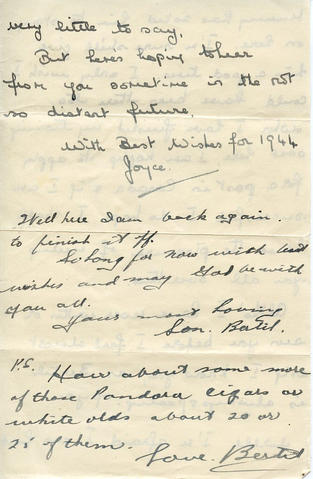 very little to say.
But heres hoping to hear
from you sometime in the not
so distant future.
With Best Wishes for 1944
Joyce.
Well here I am back again.
to finish it off.
So long for now with best
wishes and may God be with
you all.
Yours most loving
Son. Bertil.
P.S. How about some more
of those Pandora cigars or
white olds about 20 or
25 of them.
Love. Bertil